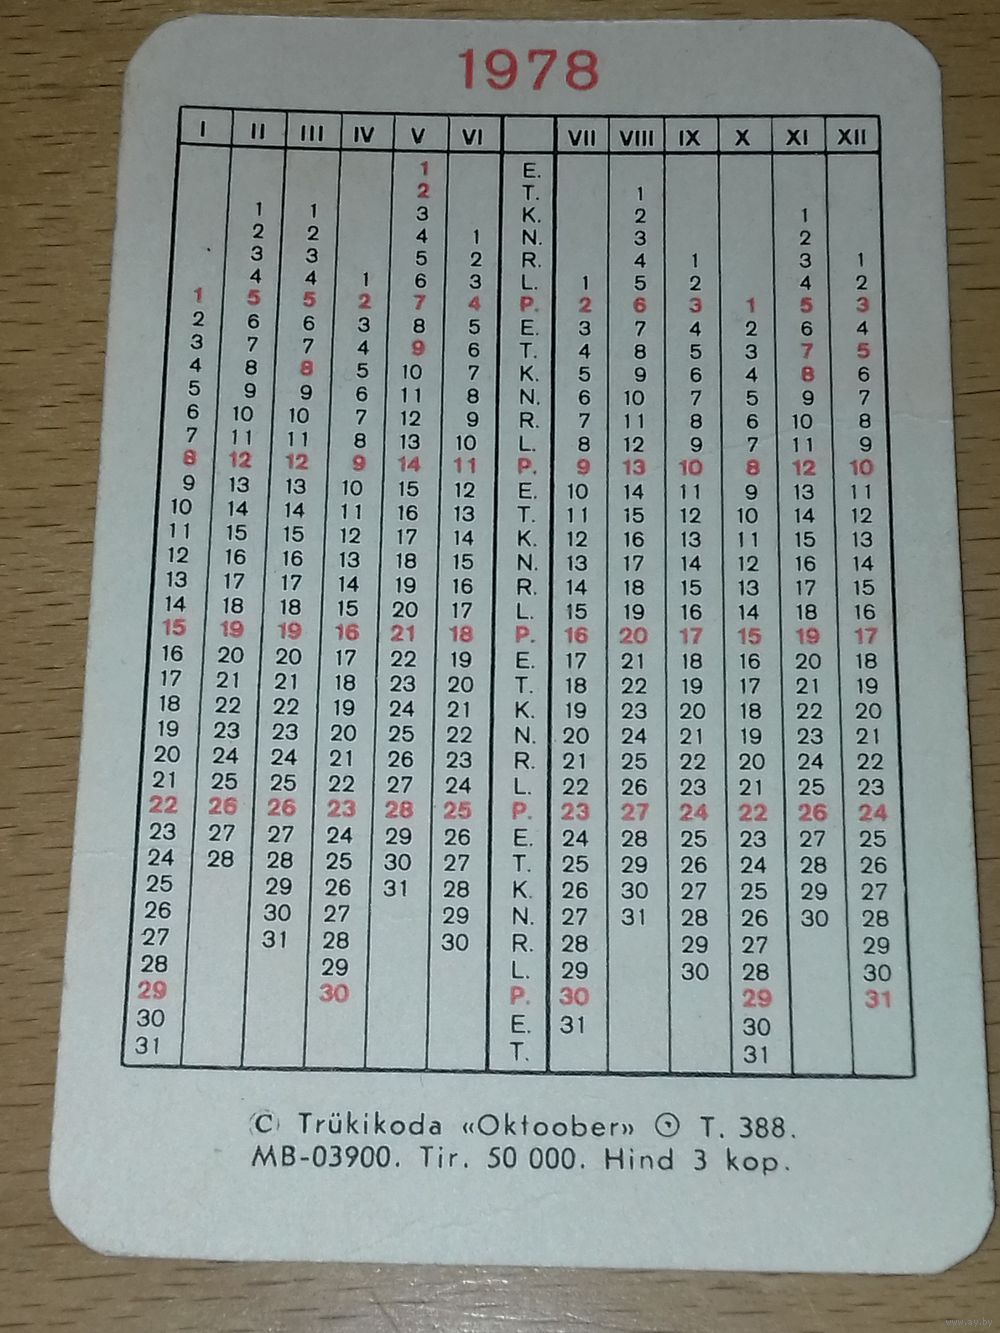 1978
I II III IV V VI VII VIII IX X XI XII
1 E.
2 T. 1
1 1 3 K. 2 1
2 2 4 1 N. 3 2
3 3 5 2 R. 4 1 3 1
4 4 1 6 3 L. 1 5 2 4 2
1 5 5 2 7 4 P. 2 6 3 1 5 3
2 6 6 3 8 5 E. 3 7 4 2 6 4
3 7 7 4 9 6 T. 4 8 5 3 7 5
4 8 8 5 10 7 K. 5 9 6 4 8 6
5 9 9 6 11 8 N. 6 10 7 5 9 7
6 10 10 7 12 9 R. 7 11 8 6 10 8
7 11 11 8 13 10 L. 8 12 9 7 11 9
8 12 12 9 14 11 P. 9 13 10 8 12 10
9 13 13 10 15 12 E. 10 14 11 9 13 11
10 14 14 11 16 13 T. 11 15 12 10 14 12
11 15 15 12 17 14 K. 12 16 13 11 15 13
12 16 16 13 18 15 N. 13 17 14 12 16 14
13 17 17 14 19 16 R. 14 18 15 13 17 15
14 18 18 15 20 17 L. 15 19 16 14 18 16
15 19 19 16 21 18 P. 16 20 17 15 19 17
16 20 20 17 22 19 E. 17 21 18 16 20 18
17 21 21 18 23 20 T. 18 22 19 17 21 19
18 22 22 19 24 21 K. 19 23 20 18 22 20
19 23 23 20 25 22 N. 20 24 21 19 23 21
20 24 24 21 26 23 R. 21 25 22 20 24 22
21 25 25 22 27 24 L. 22 26 23 21 25 23
22 26 26 23 28 25 P. 23 27 24 22 26 24
23 27 27 24 29 26 E. 24 28 25 23 27 25
24 28 28 25 30 27 T. 25 29 26 24 28 26
25 29 26 31 28 K. 26 30 27 25 29 27
26 30 27 29 N. 27 31 28 26 30 28
27 31 28 30 R. 28 29 27 29
28 29 L. 29 30 28 30
29 30 P. 30 29 31
30 E. 31 30
31 T. 31
© Trükikoda «Oktoober» T. 388.
MB-03900. Tir. 50 000. Hind 3 kop.
www.ay.by